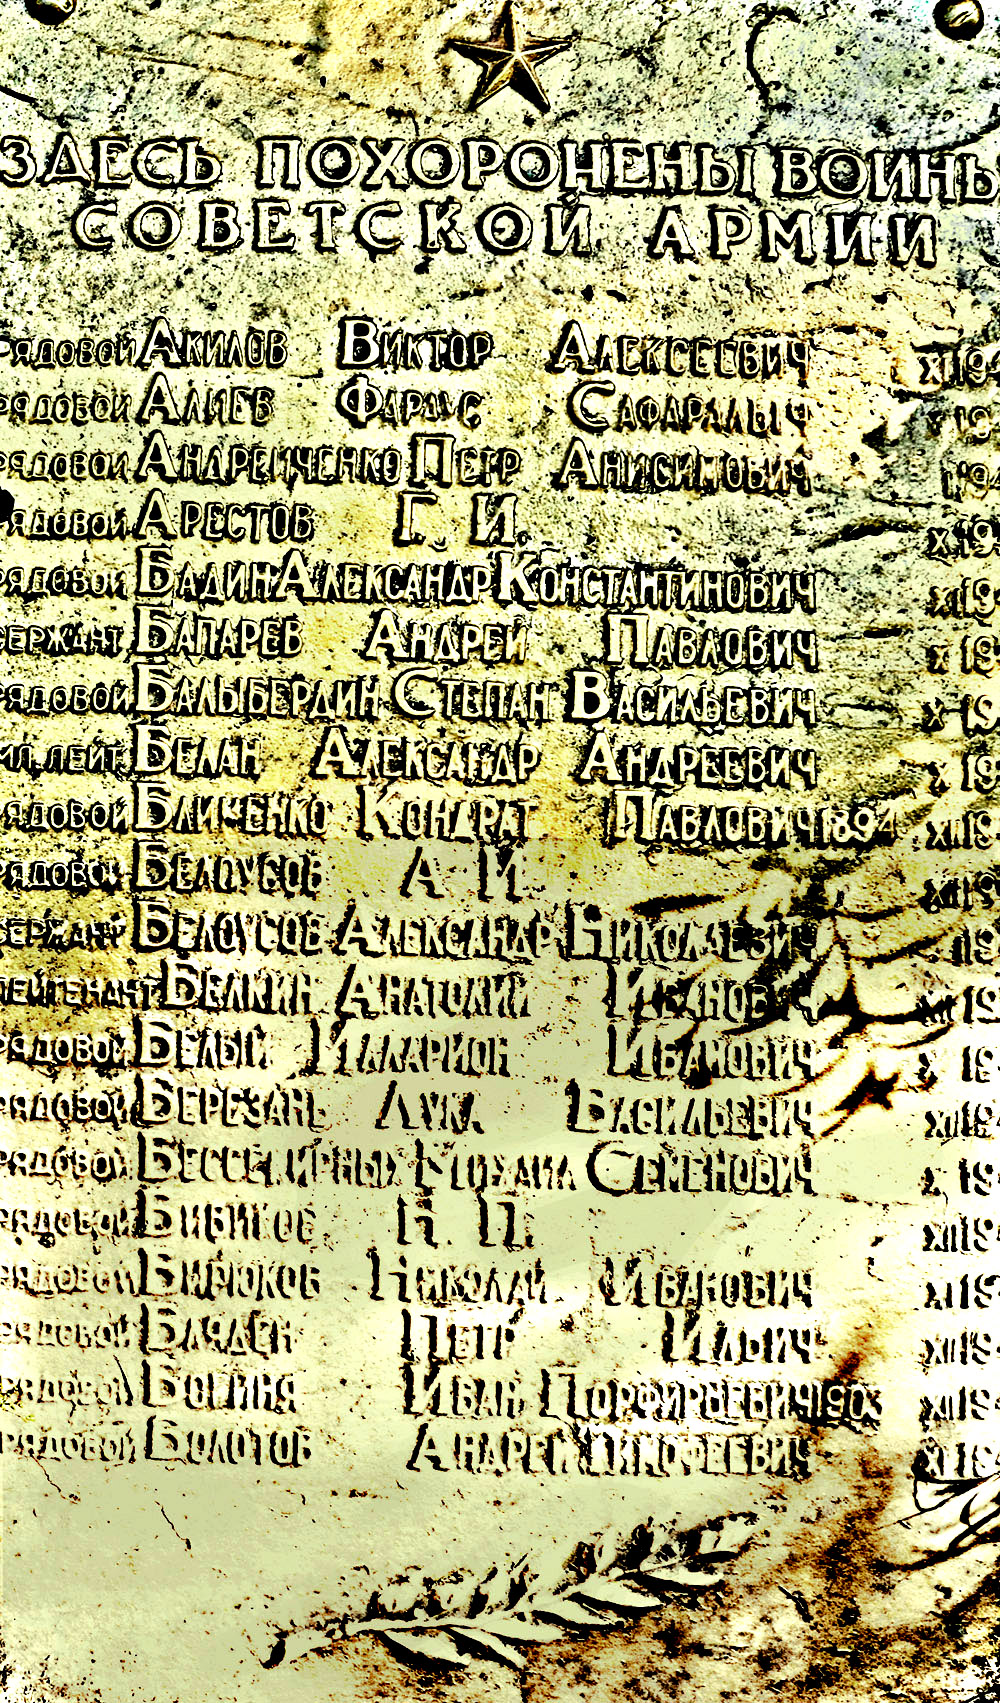 ЗДЕСЬ ПОХОРОНЕНЫ ВОИНЫ
СОВЕТСКОЙ АРМИИ
РЯДОВОЙ АКИЛОВ ВИКТОР АЛЕКСЕЕВИЧ XI 194
РЯДОВОЙ АЛИЕВ САФАРАЛЫЧ
РЯДОВОЙ АНДРЕЙЧЕНКО ПЕТР АНИСИМОВИЧ
РЯДОВОЙ АРЕСТОВ Г. И.
РЯДОВОЙ БАДИН АЛЕКСАНДР КОНСТАНТИНОВИЧ
СЕРЖАНТ БАПАРЕВ АНДРЕЙ ПАВЛОВИЧ X 19
РЯДОВОЙ БАЛЫБЕРДИН СТЕПАН ВАСИЛЬЕВИЧ X 19
МЛ.ЛЕЙТ. БЕЛАН АЛЕКСАНДР АНДРЕЕВИЧ X 19
РЯДОВОЙ БЛИЧЕНКО КОНДРАТ ПАВЛОВИЧ 1894 XII 19
РЯДОВОЙ БЕЛОУСОВ А И XII 19
СЕРЖАНТ БЕЛОУСОВ АЛЕКСАНДР НИКОЛАЕВИЧ
ЛЕЙТЕНАНТ БЕЛКИН АНАТОЛИЙ ИВАНОВИЧ
РЯДОВОЙ БЕЛЫЙ ИЛЛАРИОН ИВАНОВИЧ X 19
РЯДОВОЙ БЕРЕЗАНЬ ЛУКА ВАСИЛЬЕВИЧ XII 194
РЯДОВОЙ БЕССМИРНЫХ МИХАИЛ СЕМЕНОВИЧ X 19
РЯДОВОЙ БИБИКОВ Н. П. XII 194
РЯДОВОЙ БИРЮКОВ НИКОЛАЙ ИВАНОВИЧ
РЯДОВОЙ ПЕТР ИЛЬИЧ XII 19
РЯДОВОЙ ИВАН ПОРФИРЬЕВИЧ 1903 XII 19
РЯДОВОЙ БОЛОТОВ АНДРЕЙ ТИМОФЕЕВИЧ